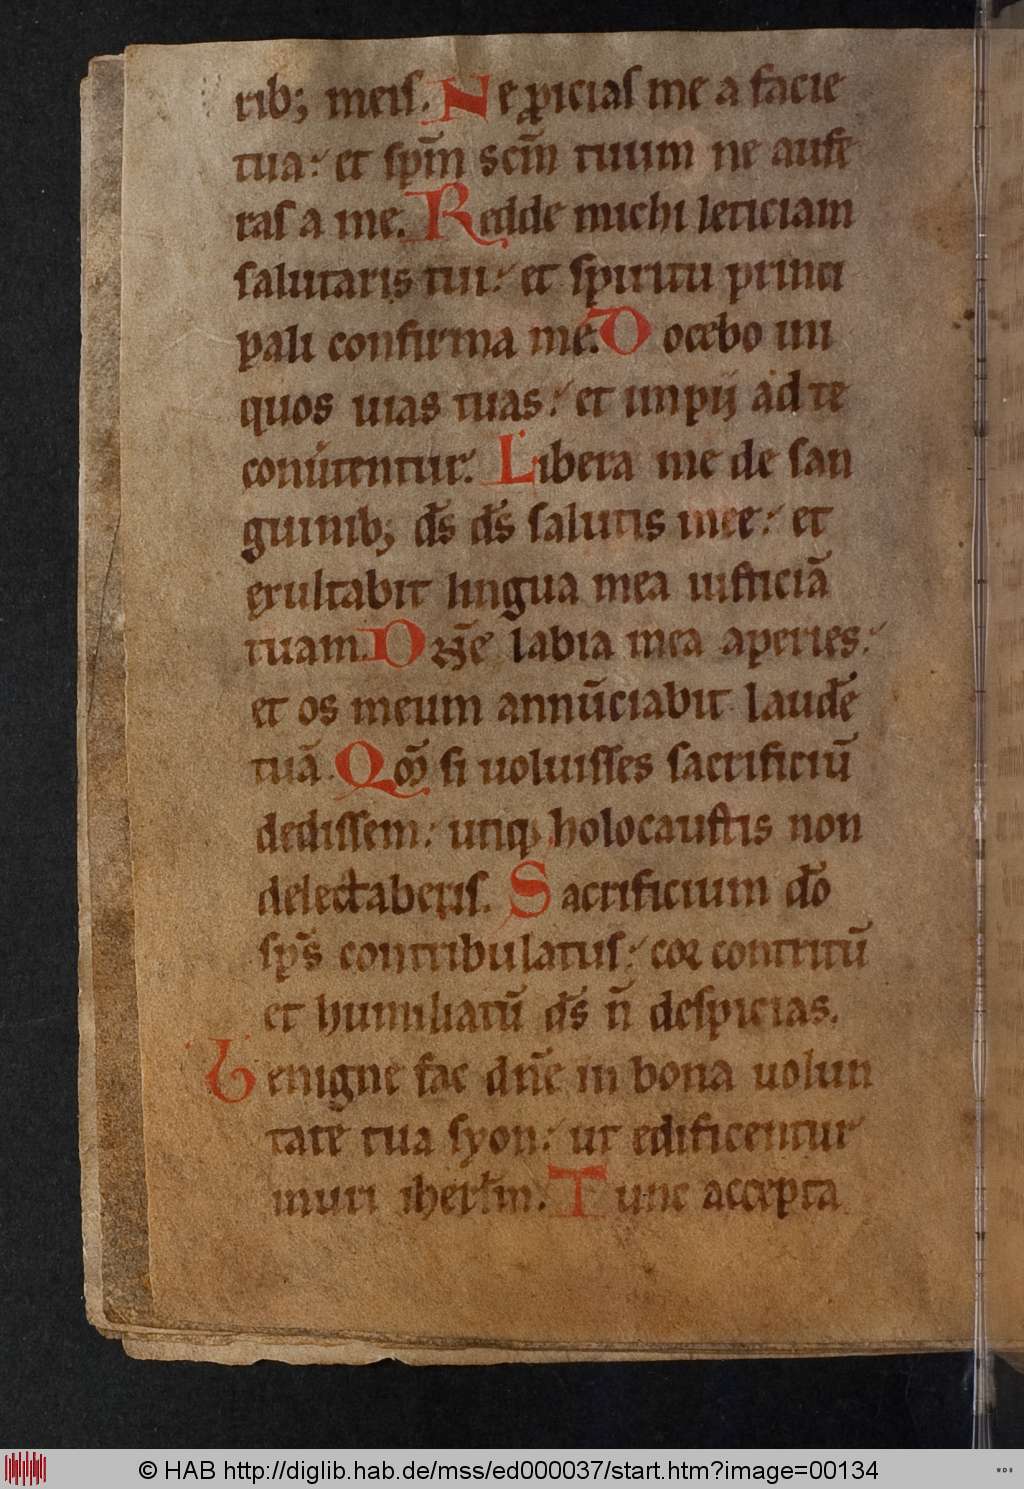 rib; meis. Ne ꝓicias me a facie
tua: et sp̄m sc̄m tuum ne aufe
ras a me. Redde michi leticiam
salutaris tui: et spiritu princi
pali confirma me. Docebo ini
quos uias tuas: et impij ad te
conu̾tentur. Libera me de san
guinib; d̄s d̄s salutis mee: et
exultabit lingua mea iusticiā
tuam. Dn̄e labia mea aperies:
et os meum annūciabit laudē
tuā. Qm̄ si uoluisses sacrificiū
dedissem: utiqꝫ holocaustis non
delectaberis. Sacrificium d̄o
sp̄s contribulatus: cor contritū
et humiliatū d̄s n̄ despicias.
Benigne fac dn̄e in bona uolun
tate tua syon: ut edificentur
muri iherl̄m. Tunc accepta
© HAB http://diglib.hab.de/mss/ed000037/start.htm?image=00134